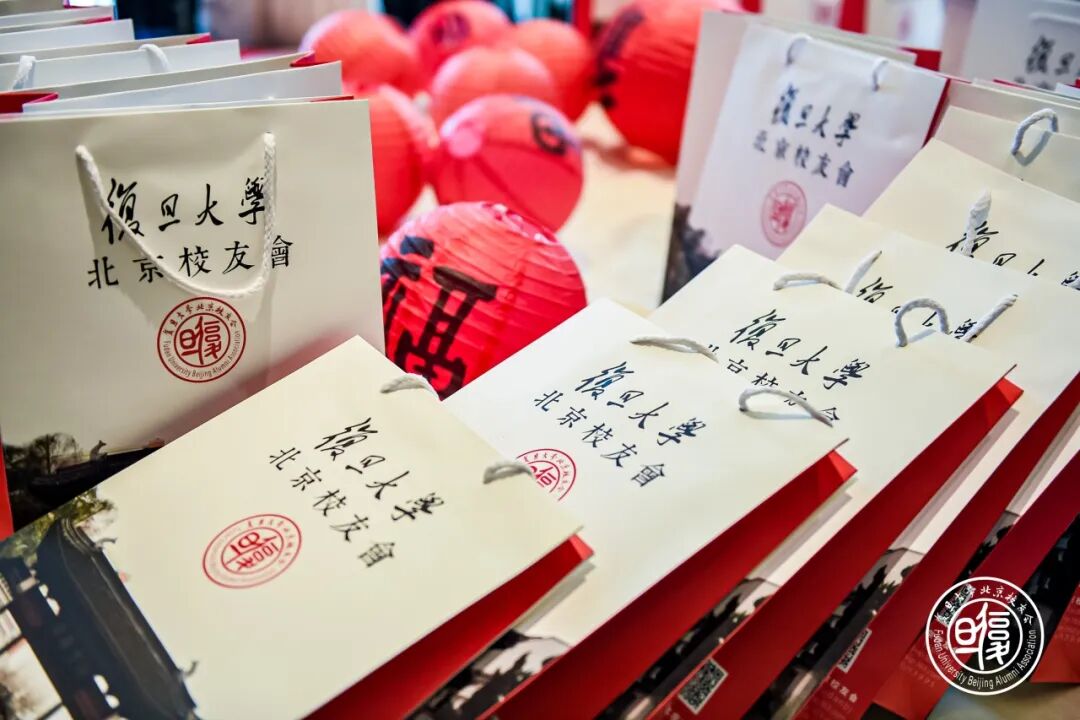 復旦大學
北京校友會
復旦大學北京校友會
Fudan University Beijing Alumni Association
復旦
復旦大學
北京校友會
復旦
復旦大學
北京校友會
復旦大學
北京校友會
復旦大學
北京校友會
復旦大學
復
酒
復旦大學北京校友會
Fudan University Beijing Alumni Association
復旦